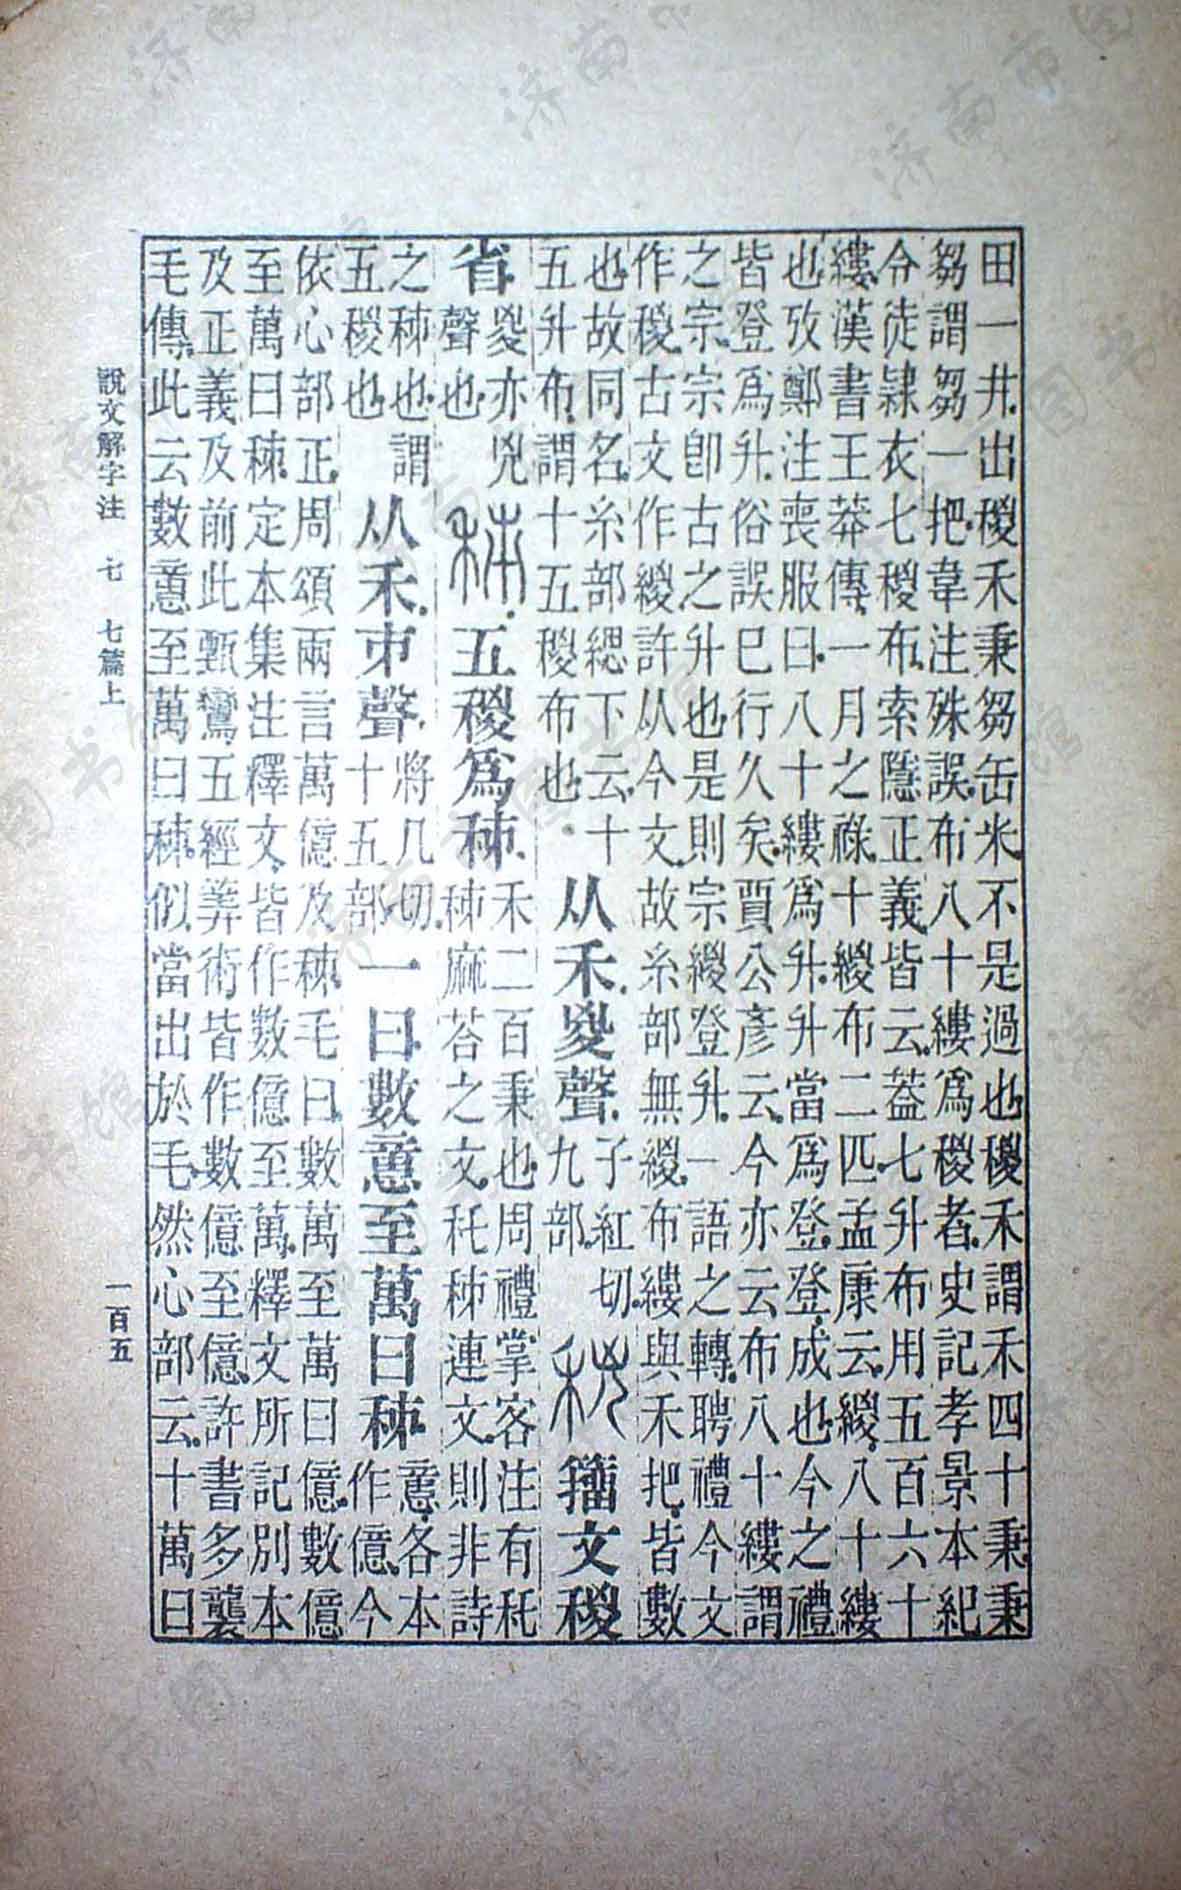 田一井出稯禾秉芻缶米不是過也稯禾謂禾四十秉秉
芻謂芻一把韋注殊誤布八十縷爲稯者史記孝景本紀
令徒隸衣七稯布索隱正義皆云葢七升布用五百六十
縷漢書王莽傳一月之祿十緵布二匹孟康云緵八十縷
也攷鄭注喪服曰八十縷爲升升當爲登登成也今之禮
皆登爲升俗誤巳行久矣賈公彥云今亦云布八十縷謂
之宗宗卽古之升也是則宗緵登升一語之轉聘禮今文
作稯古文作緵許从今文故糸部無緵布縷與禾把皆數
也故同名糸部緦下云十
五升布謂十五稯布也
从禾㚇聲
子紅切
九部
籒文稯
省
㚇亦兇
聲也
秭
五稯爲秭
禾二百秉也周禮掌客注有秅
秭麻荅之文秅秭連文則非詩
之秭也謂
五稯也
从禾𠂔聲
將几切
十五部
一曰數𢡃至萬曰秭
𢡃各本
作億今
依心部正周頌兩言萬億及秭毛曰數萬至萬曰億數億
至萬曰秭定本集注釋文皆作數億至萬釋文所記別本
及正義及前此甄鸞五經筭術皆作數億至億許書多襲
毛傳此云數𢡃至萬曰秭似當出於毛然心部云十萬曰
說文解字注 七 七篇上
一百五
济南市图书馆